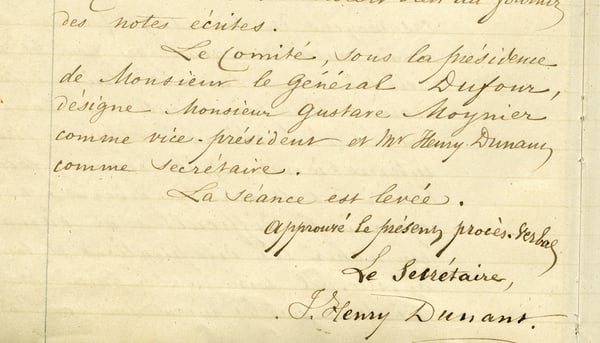 des notes écrites.
Le Comité, sous la présidence
de Monsieur le Général Dufour,
désigne Monsieur Gustave Moynier
comme vice-président et Mr Henry Dunant
comme secrétaire.
La séance est levée.
Approuvé le présent procès-verbal
Le Secrétaire,
J. Henry Dunant.